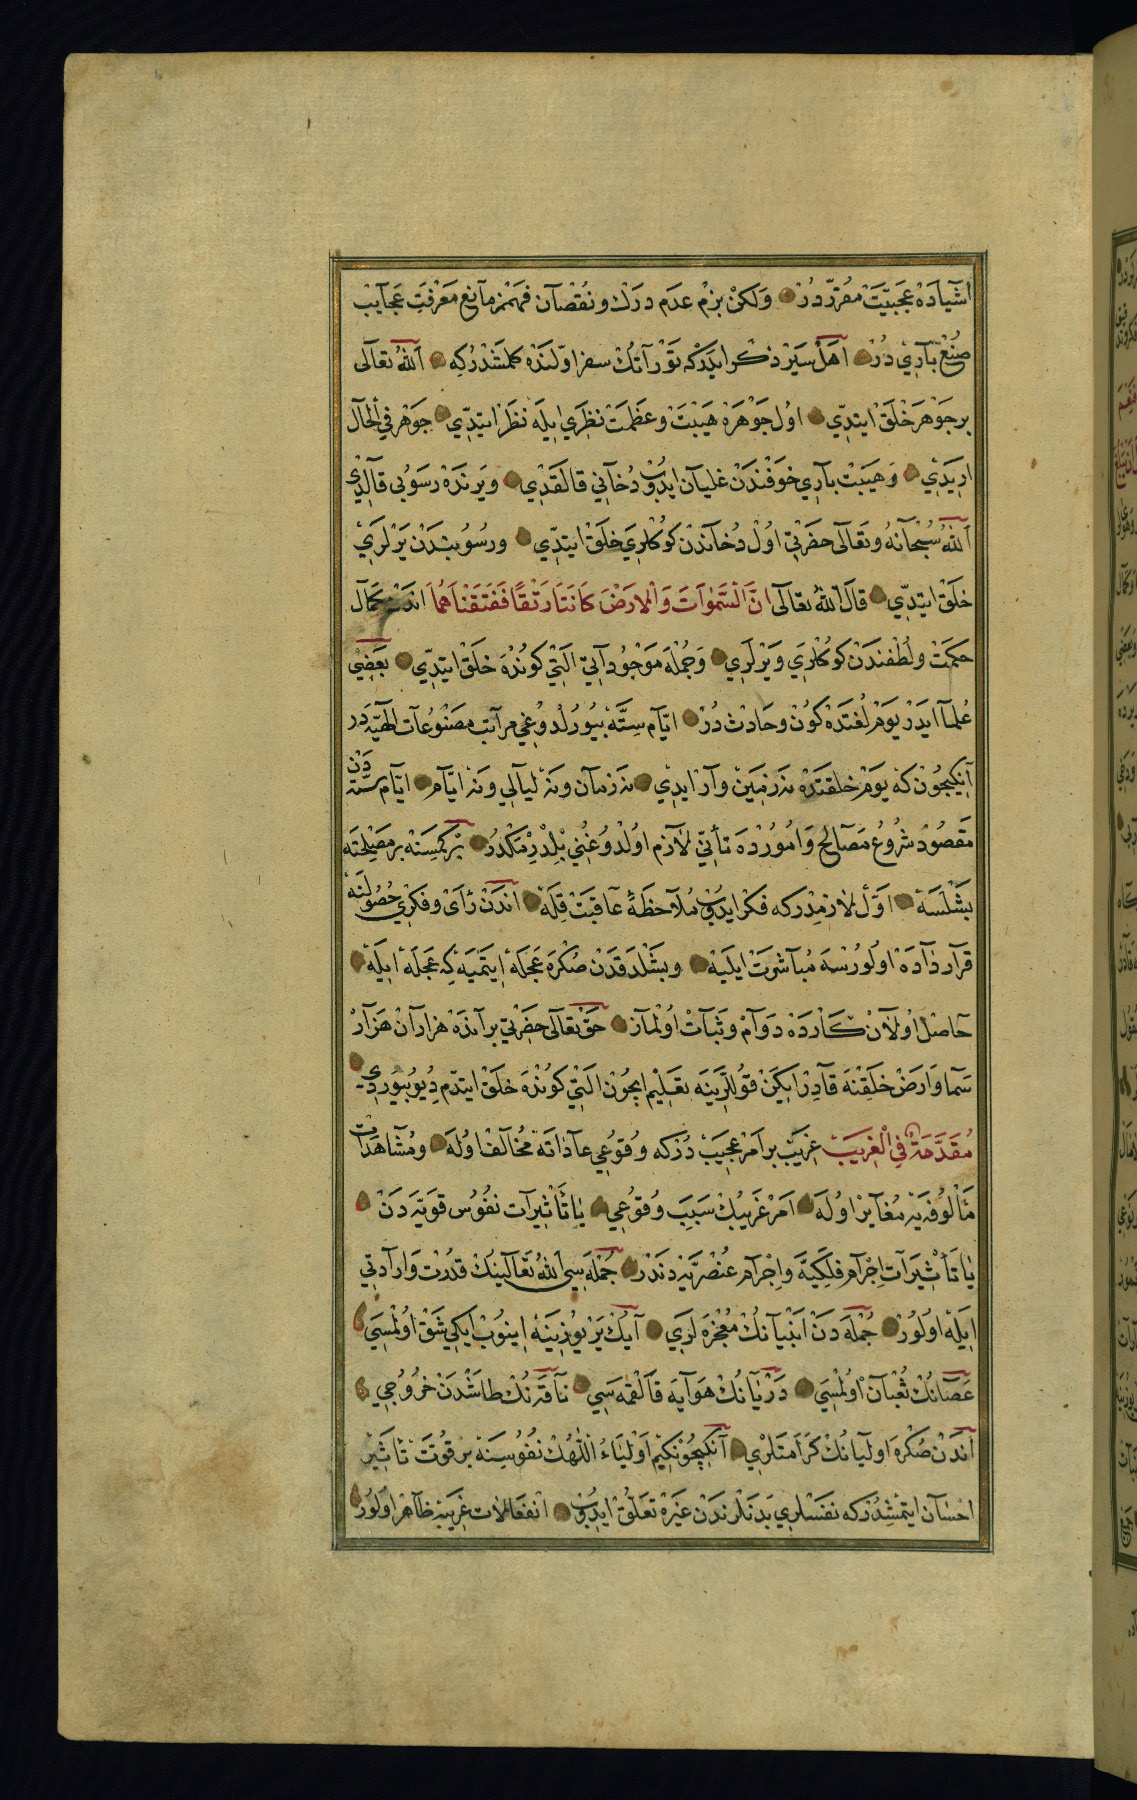 اشیاده عجبیّت مقرّر در ولکن بزم عدم درك و نقصان فهممز مانع معرفت عجایب
صنع باری در اهل سیر ذکر ایدر که توراتك سفر اوّلنده کلمشدر که الله تعالی
بر جوهر خلق ایتدی اول جوهره هیبت و عظمت نظری ایله نظر ایتدی جوهر فی الحال
اریدی و هیبت باری خوفندن غلیان ایدوب دخانی قالقدی و یرنده رسوبی قالدی
الله سبحانه و تعالی حضرتی اول دخاندن کوکلری خلق ایتدی و رسوبیندن یرلری
خلق ایتدی قال الله تعالی انّ السّموات والارض کانتا رتقا ففتقناهما اندن کمال
حکمت و لطفندن کوکلری و یرلری و جمله موجوداتی التی کونده خلق ایتدی بعضی
علما ایدر یوم لغتده کون و حادث در ایّام ستّه بیورلدوغی مراتب مصنوعات الهیّه در
آنکیچون که یوم خلقتده نه زمین وار ایدی نه زمان و نه لیالی و نه ایّام ایّام ستّه دن
مقصود شروع مصالح و امورده تأنّی لازم اولدوغنی بلدرمکدر بر کمسنه بر مصلحته
بشلسه اوّل لازمدر که فکر ایدوب ملاحظهٔ عاقبت قله اندن رأی و فکری حصولنه
قرارداده اولورسه مباشرت ایلیه و بشلدقدن صکره عجله ایتمیه که عجله ایله
حاصل اولان کارده دوام و ثبات اولماز حق تعالی حضرتی بر آنده هزاران هزار
سما و ارض خلقنه قادر ایکن قوللرینه تعلیم ایچون التی کونده خلق ایتدم دیو بیوردی
مقدّمة فی الغریب غریب بر امر عجیب در که وقوعی عاداته مخالف اوله و مشاهدات
مألوفه یه مغایر اوله امر غریبك سبب وقوعی یا تأثیرات نفوس قویّه دن
یا تأثیرات اجرام فلکیّه و اجرام عنصریّه دندر جمله سی الله تعالینك قدرت و ارادتی
ایله اولور جمله دن انبیانك معجزه لری آیك یر یوزینه اینوب ایکی شق اولمسی
عصانك ثعبان اولمسی دریانك هوایه قالقمه سی ناقه نك طاشدن خروجی
اندن صکره اولیانك کرامتلری آنکیچونکیم اولیاء اللهك نفوسینه بر قوّت تأثیر
احسان ایتمشدر که نفسلری بدنلرندن غیره تعلّق ایدوب انفعالات غریبه ظاهر اولور